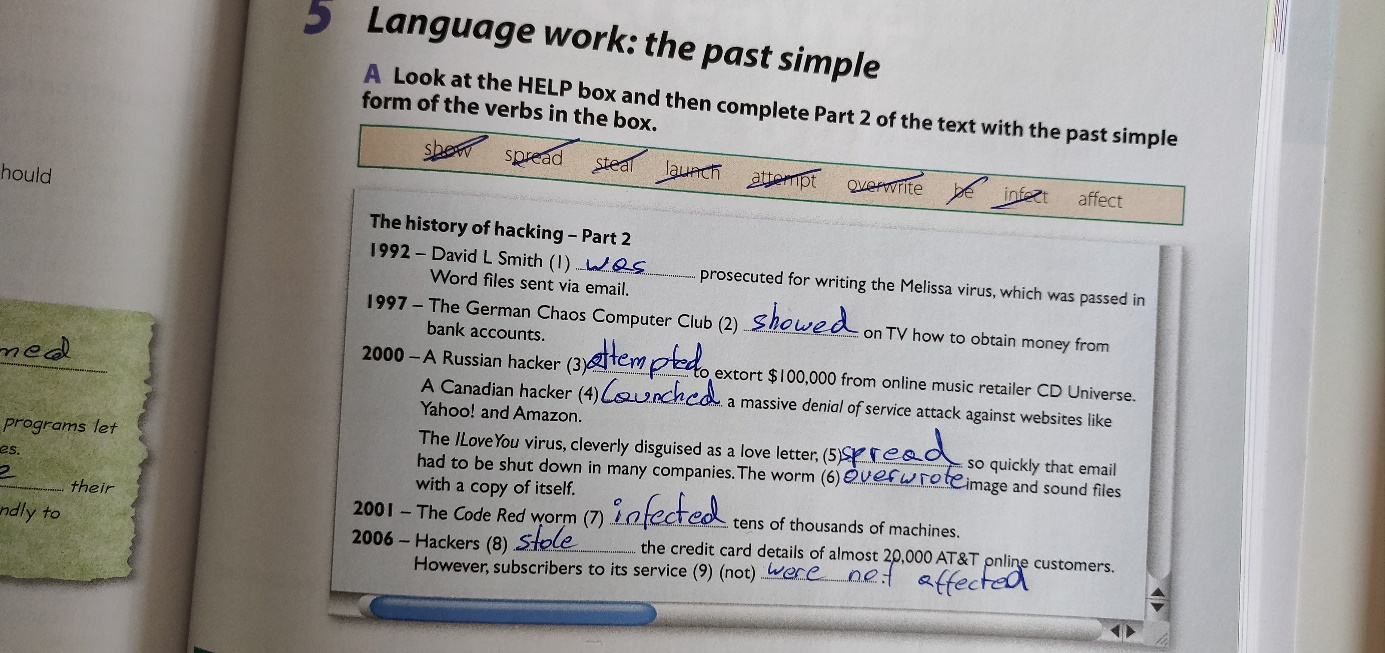 5 Language work: the past simple
A Look at the HELP box and then complete Part 2 of the text with the past simple
form of the verbs in the box.
show spread steal launch attempt overwrite be infect affect
The history of hacking – Part 2
1992 – David L Smith (1) was prosecuted for writing the Melissa virus, which was passed in
Word files sent via email.
1997 – The German Chaos Computer Club (2) showed on TV how to obtain money from
bank accounts.
2000 – A Russian hacker (3) attempted to extort $100,000 from online music retailer CD Universe.
A Canadian hacker (4) Launched a massive denial of service attack against websites like
Yahoo! and Amazon.
The ILoveYou virus, cleverly disguised as a love letter, (5) spread so quickly that email
had to be shut down in many companies. The worm (6) overwrote image and sound files
with a copy of itself.
2001 – The Code Red worm (7) infected tens of thousands of machines.
2006 – Hackers (8) stole the credit card details of almost 20,000 AT&T online customers.
However, subscribers to its service (9) (not) were not affected
programs let
their